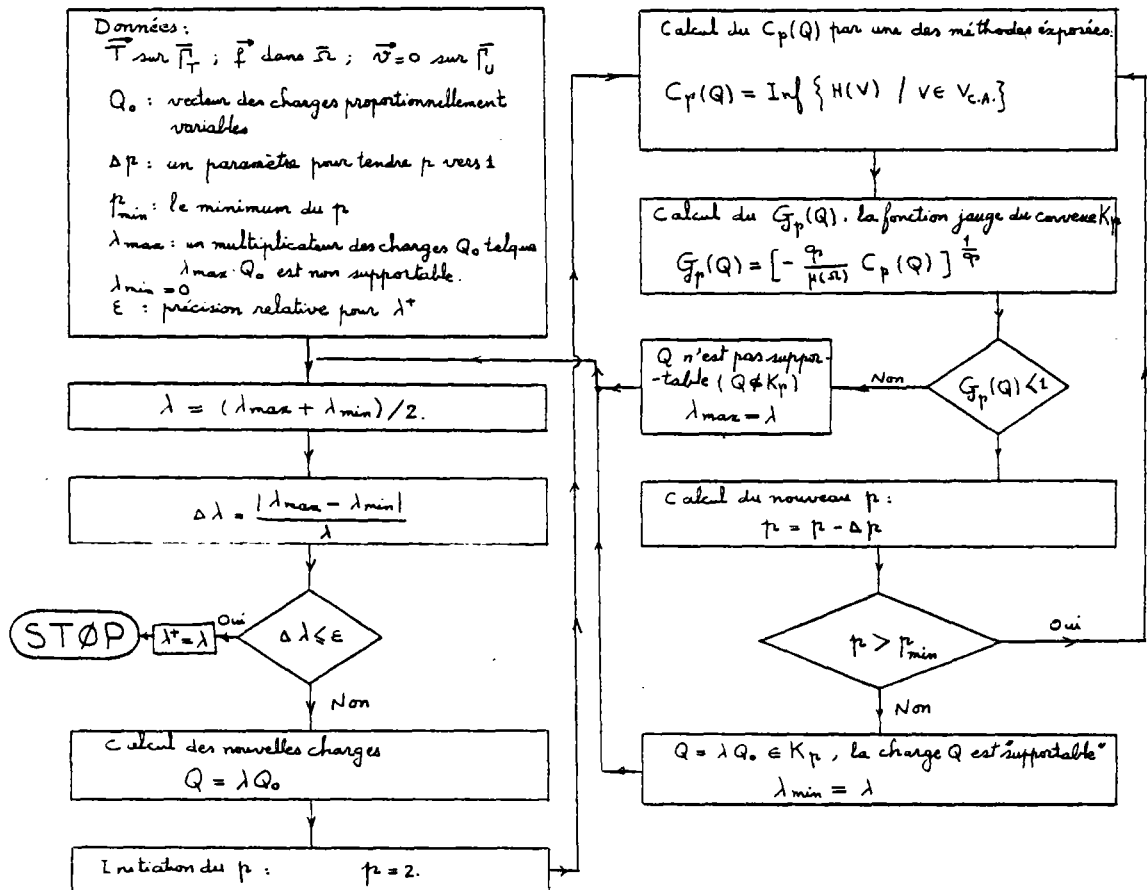 Données:
T⃗ sur Γ̄_T ; f⃗ dans Ω̄ ; v⃗=0 sur Γ̄_U
Q₀ : vecteur des charges proportionnellement
variables
Δp : un paramètre pour tendre p vers 1
p_min : le minimum du p
λmax : un multiplicateur des charges Q₀ telque
λmax · Q₀ est non supportable.
λmin = 0
ε : précision relative pour λ⁺
λ = (λmax + λmin)/2.
Δλ = |λmax - λmin| / λ
Δλ ≤ ε
Oui
λ⁺ = λ
STØP
Non
Calcul des nouvelles charges
Q = λQ₀
Initiation du p : p = 2.
Calcul du Cp(Q) par une des méthodes exposées:
Cp(Q) = Inf { H(V) / V ∈ V_C.A. }
Calcul du Gp(Q). la fonction jauge du convexe Kp
Gp(Q) = [ - p/μ(Ω) Cp(Q) ]^(1/p)
Gp(Q) < 1
Non
Q n'est pas suppor-
-table (Q ∉ Kp)
λmax = λ
Calcul du nouveau p :
p = p - Δp
p > p_min
Oui
Non
Q = λQ₀ ∈ Kp, la charge Q est "supportable"
λmin = λ